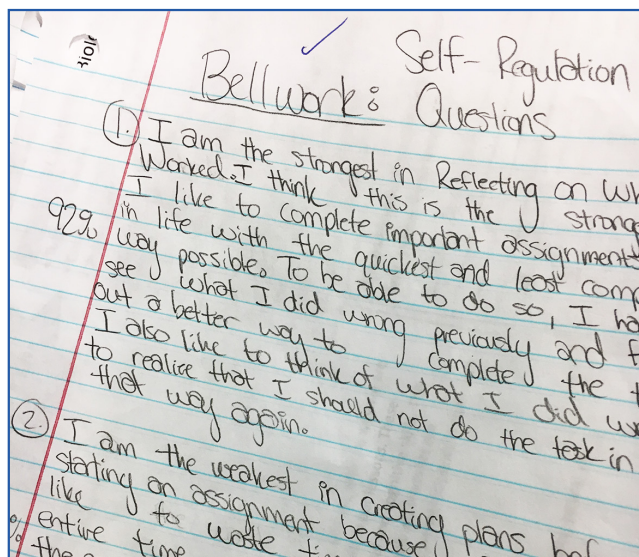 Self-Regulation
Bellwork: Questions
1. I am the strongest in Reflecting on
Worked. I think this is the
I like to complete important assignments
92% in life with the quickest and least
way possible. To be able to do so, I
see what I did wrong previously and
out a better way to complete the
I also like to think of what I did
to realize that I should not do the task in
that way again.
2. I am the weakest in creating plans
starting an assignment because
like to waste
entire time
the